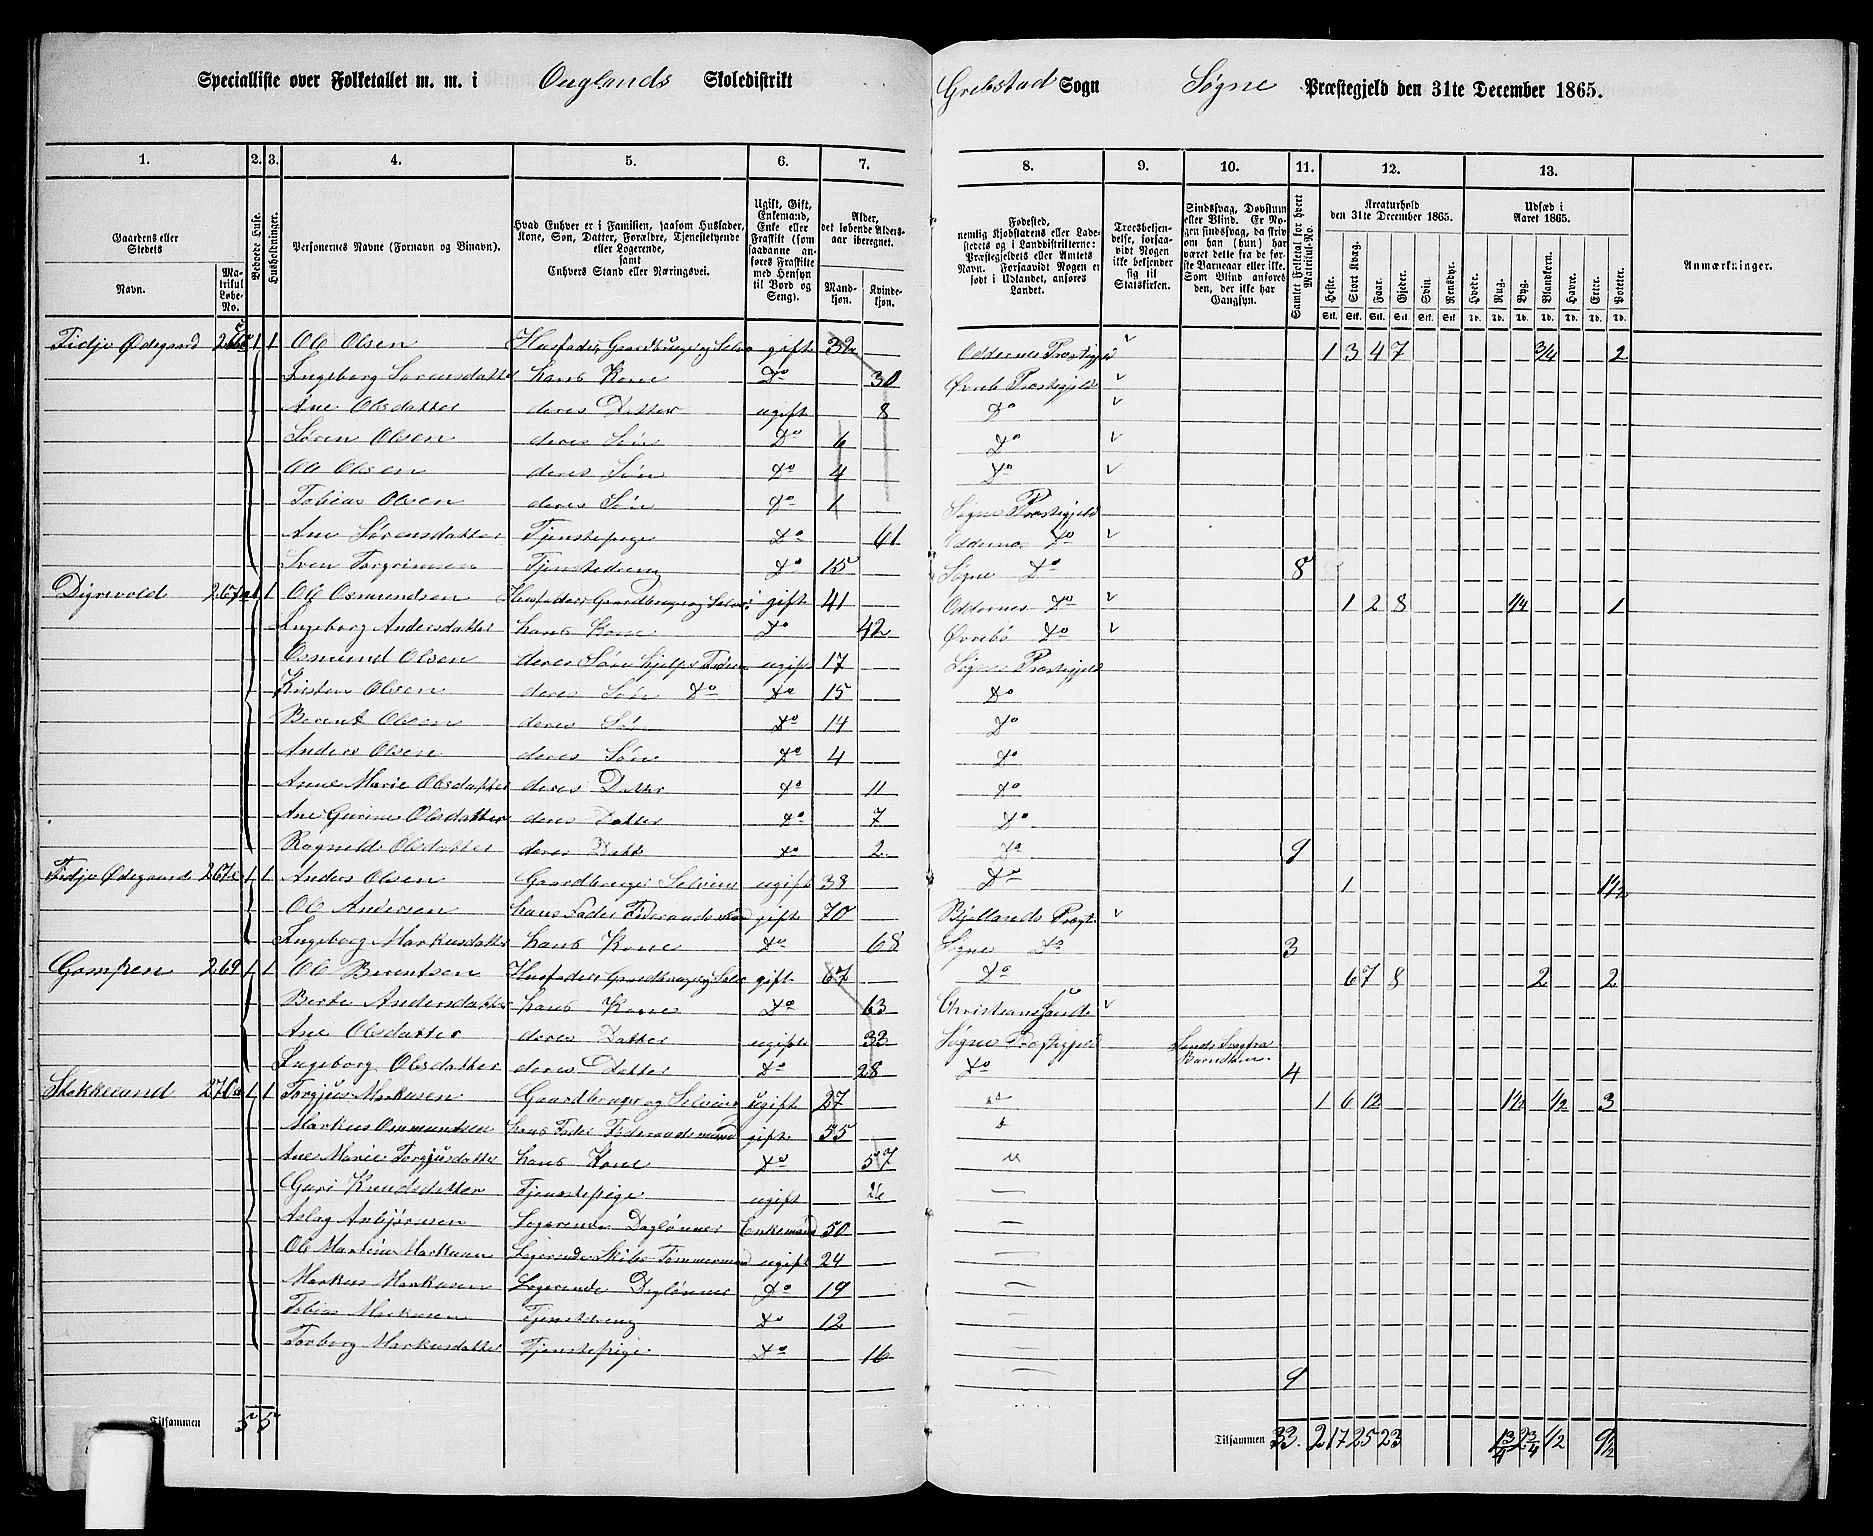 Specialliste over Folketallet m. m. i Ouglands Skoledistrikt Grebstad Sogn Søgne Præstegjeld den 31te December 1865.
1. 2. 3. 4. 5. 6. 7. 8. 9. 10. 11. 12. 13.
Gaardens eller Stedets Navn. Matrikul Løbe-No. Beboede Huse. Husholdninger. Personernes Navne (Fornavn og Binavn). Hvad Enhver er i Familien, saasom Husfader, Kone, Søn, Datter, Forældre, Tjenstetyende eller Logerende, samt Enhvers Stand eller Næringsvei. Ugift, Gift, Enkemand, Enke eller Fraskilt (som saadanne anføres Fraskilte med Hensyn til Bord og Seng). Alder, det løbende Aldersaar iberegnet. Mandkjøn. Kvindekjøn.
Fødested, nemlig Kjøbstadens eller Ladestedets og i Landdistrikterne: Præstegjeldets eller Amtets Navn. Forsaavidt Nogen er født i Udlandet, anføres Landet. Troesbekjendelse, forsaavidt Nogen ikke bekjender sig til Statskirken. Sindssvag, Døvstum eller Blind. Er Nogen sindssvag, da skriv om han (hun) har været dette fra de første Barneaar eller ikke. Som Blind anføres den, der ikke har Gangsyn. Samlet Folketal for hvert Matrikul-No. Kreaturhold den 31te December 1865. Heste. Stort Kvæg. Faar. Gjeder. Svin. Rensdyr. Udsæd i Aaret 1865. Hvede. Rug. Byg. Blandkorn. Havre. Erter. Poteter. Anmærkninger.
Stk. Stk. Stk. Stk. Stk. Stk. Td. Td. Td. Td. Td. Td. Td.
Tidjo Ødegaard 1 1 Ole Olsen Husfader, Gaardbruger og Selveier gift 32 Oddernes Præstegjeld 1 3 4 7 3/4 2
Ingeborg Sørensdatter hans Kone Do 30 Øvrebø Præstegjeld
Ane Olsdatter deres Datter ugift 8 Do
Søren Olsen deres Søn Do 6 Do
Ole Olsen deres Søn Do 4 Do
Tobias Olsen deres Søn Do 1 Søgne Præstegjeld
Ane Sørensdatter Tjenstepige Do 41 Oddernes Do
Sven Torgrimsen Tjenstedreng Do 15 Søgne Do 8
Digrevold 267a 1 1 Ole Osmundsen Husfader Gaardbruger og Selveier gift 41 Oddernes Do 1 2 8 1/4 1
Ingeborg Andersdatter hans Kone Do 42 Øvrebø Do
Osmund Olsen deres Søn hjelper Faderen ugift 17 Søgne Præstegjeld
Kristen Olsen deres Søn Do Do 15 Do
Berent Olsen deres Søn Do 14 Do
Anders Olsen deres Søn Do 4 Do
Anne Marie Olsdatter deres Datter Do 11 Do
Ane Gurine Olsdatter deres Datter Do 7 Do
Ragnild Olsdatter deres Datt Do 2 Do 9
Tidjo Ødegaard 267c 1 1 Anders Olsen Gaardbruger Selveier ugift 38 Do 1 1 1/2
Ole Andersen hans Fader Føderaadsmand gift 70 Bjellands Prægt
Ingeborg Markusdatter hans Kone Do 68 Søgne Do 3
Gompen 269 1 1 Ole Berentsen Husfader, Gaardbruger og Selv gift 67 Do 6 7 8 2 2
Berte Andersdatter hans Kone Do 63 Christianssands
Ane Olsdatter deres Datter ugift 33 Søgne Præstegjeld Sinds Svag fra
Barndom.
Ingeborg Olsdatter deres Datter Do 28 Do 4
Stokkeland 270a 1 1 Torgjus Markusen Gaardbruger og Selveier ugift 27 1 6 12 1/2 3
Markus Ommundsen hans Fader Føderaadsmand gift 55
Ane Marie Torgjusdatter hans Kone Do 57
Guri Knudsdatter Tjenstepige ugift 26
Aslag Asbjørnsen Logerende Daglønner Enkemand 50
Ole Martin Markusen Logerende Skibs Tømmermand ugift 24
Markus Markusen Logerende Daglønner Do 19
Tobias Markusen Tjenstdreng Do 12
Torborg Markusdatter Tjenstepige Do 16 9
Tilsammen 5 5 Tilsammen 33. 2 17 25 23 1 3/4 2 3/4 1/2 9 1/2